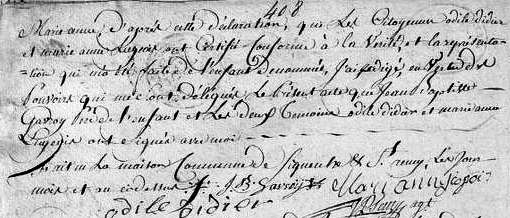 408
Marie anne, d'après cette déclaration, que Les Citoyennes odile didier
et marie anne ont Certifié Conforme à la Vérité, et la représenta-
-tion qui m'a été faite de l'enfant Denommée, J'ai rédigé, en Vertu des
Pouvoirs qui me sont délégués, Le présent acte que Jean Baptiste
Gavroy père de l'enfant et Les deux Temoins odile didier et marie anne
ont signés avec moi
fait en La maison Commune de & St remy, Les Jour
mois et an cidessus. J. B. Gavroy
Mari ann
odile didier